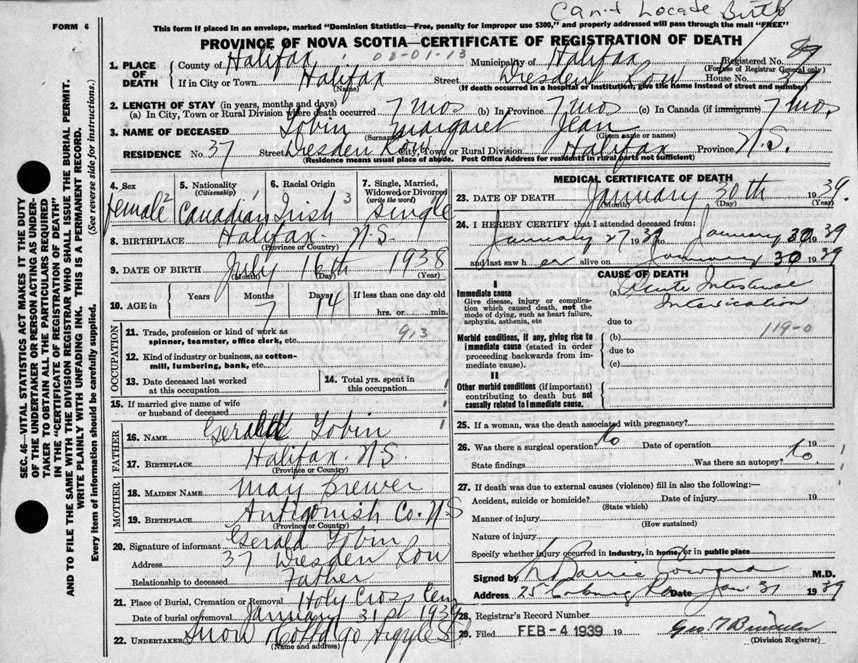 Can't Locate Birth
FORM 6
This form if placed in an envelope, marked "Dominion Statistics—Free, penalty for improper use $300," and properly addressed will pass through the mail "FREE"
PROVINCE OF NOVA SCOTIA—CERTIFICATE OF REGISTRATION OF DEATH
SEC. 46—VITAL STATISTICS ACT MAKES IT THE DUTY
OF THE UNDERTAKER OR PERSON ACTING AS UNDER-
TAKER TO OBTAIN ALL THE PARTICULARS REQUIRED
IN THE "CERTIFICATE OF REGISTRATION OF DEATH"
AND TO FILE THE SAME WITH THE DIVISION REGISTRAR WHO SHALL ISSUE THE BURIAL PERMIT.
WRITE PLAINLY WITH UNFADING INK. THIS IS A PERMANENT RECORD.
Every item of information should be carefully supplied. (See reverse side for instructions.)
1. PLACE OF DEATH
County of Halifax 03-01-13 Municipality of Halifax Registered No. 89
(For use of Registrar General only)
If in City or Town Halifax Street Dresden Row House No. 37
(Name) (If death occurred in a hospital or institution, give the name instead of street and number)
2. LENGTH OF STAY (in years, months and days)
(a) In City, Town or Rural Division where death occurred 7 mos (b) In Province 7 mos (c) In Canada (if immigrant) 7 mos.
3. NAME OF DECEASED Tobin Margaret Jean
(Surname) (Given name or names)
RESIDENCE No. 37 Street Dresden Row City, Town or Rural Division Halifax Province N.S.
(Residence means usual place of abode. Post Office Address for residents in rural parts not sufficient)
4. Sex 5. Nationality (Citizenship) 6. Racial Origin 7. Single, Married, Widowed or Divorced (write the word)
female 2 Canadian Irish 3 Single
8. BIRTHPLACE Halifax N.S.
(Province or Country)
9. DATE OF BIRTH July 16th 1938
(Month) (Day) (Year)
10. AGE in Years Months Days If less than one day old
7 14 hrs. or min.
OCCUPATION
11. Trade, profession or kind of work as
spinner, teamster, office clerk, etc. 913
12. Kind of industry or business, as cotton-
mill, lumbering, bank, etc.
13. Date deceased last worked
at this occupation
14. Total yrs. spent in
this occupation
15. If married give name of wife
or husband of deceased
FATHER
16. NAME Gerald Tobin
17. BIRTHPLACE Halifax N.S.
(Province or Country)
MOTHER
18. MAIDEN NAME May Brewer
19. BIRTHPLACE Antigonish Co. N S
(Province or Country)
20. Signature of informant Gerald Tobin
Address 37 Dresden Row
Relationship to deceased Father
21. Place of Burial, Cremation or Removal Holy Cross Cem
Date of burial or removal January 31st 1939
22. UNDERTAKER Snow Co Ltd 90 Argyle St
(Name and address)
MEDICAL CERTIFICATE OF DEATH
23. DATE OF DEATH January 30th 1939.
(Month) (Day) (Year)
24. I HEREBY CERTIFY that I attended deceased from:
January 27 1939 to January 30 1939
and last saw her alive on January 30 1939
CAUSE OF DEATH
I
Immediate cause (a) Acute Intestinal
Give disease, injury or complica- Intoxication
tion which caused death, not the
mode of dying, such as heart failure,
asphyxia, asthenia, etc due to
119-0
Morbid conditions, if any, giving rise to (b)
immediate cause (stated in order due to
proceeding backwards from im-
mediate cause). (c)
II
Other morbid conditions (if important)
contributing to death but not
causally related to immediate cause.
25. If a woman, was the death associated with pregnancy?
26. Was there a surgical operation? No Date of operation 19
State findings Was there an autopsy? No
27. If death was due to external causes (violence) fill in also the following:—
Accident, suicide or homicide? Date of injury 19
(State which)
Manner of injury
(How sustained)
Nature of injury
Specify whether injury occurred in Industry, in home, or in public place
Signed by Coward M.D.
Address 25 Coburg Rd Date Jan. 31 1939
28. Registrar's Record Number
29. Filed FEB - 4 1939 19
(Division Registrar)